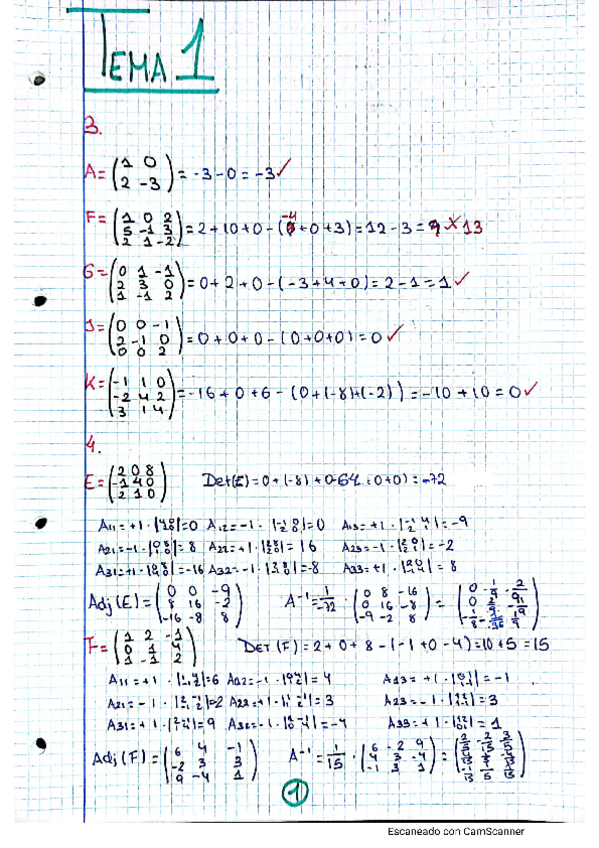 TEMA 1
3.
A = (1 0 / 2 -3) = -3 - 0 = -3 ✓
F = (1 0 2 / 5 -1 3 / 2 1 -2) = 2 + 10 + 0 - (-4 + 0 + 3) = 12 - 3 = 9 ✗ 13
G = (0 1 -1 / 2 3 0 / 1 -1 2) = 0 + 2 + 0 - (-3 + 4 + 0) = 2 - 1 = 1 ✓
J = (0 0 -1 / 2 -1 0 / 0 0 2) = 0 + 0 + 0 - (0 + 0 + 0) = 0 ✓
K = (-1 1 0 / -2 4 2 / 3 1 4) = -16 + 0 + 6 - (0 + (-8) + (-2)) = -10 + 10 = 0 ✓
4.
E = (2 0 8 / -1 4 0 / 2 1 0) Det(E) = 0 + (-8) + 0 - 64 + 0 + 0) = -72
A11 = +1 · |4 0 / 1 0| = 0 A12 = -1 · |-1 0 / 2 0| = 0 A13 = +1 · |-1 4 / 2 1| = -9
A21 = -1 · |0 8 / 1 0| = 8 A22 = +1 · |2 8 / 2 0| = 16 A23 = -1 · |2 0 / 2 1| = -2
A31 = +1 · |0 8 / 4 0| = -16 A32 = -1 · |2 8 / -1 0| = -8 A33 = +1 · |2 0 / -1 4| = 8
Adj(E) = (0 0 -9 / 8 16 -2 / -16 -8 8) A⁻¹ = 1/-72 · (0 8 -16 / 0 16 -8 / -9 -2 8) =
F = (1 2 -1 / 0 1 4 / 1 -1 2) DET (F) = 2 + 0 + 8 - (-1 + 0 - 4) = 10 + 5 = 15
A11 = +1 · |1 4 / -1 2| = 6 A12 = -1 · |0 4 / 1 2| = 4 A13 = +1 · |0 1 / 1 -1| = -1
A21 = -1 · |2 -1 / -1 2| = 2 A22 = +1 · |1 -1 / 1 2| = 3 A23 = -1 · |1 2 / 1 -1| = 3
A31 = +1 · |2 -1 / 1 4| = 9 A32 = -1 · |1 -1 / 0 4| = -4 A33 = +1 · |1 2 / 0 1| = 1
Adj (F) = (6 4 -1 / -2 3 3 / 9 -4 1) A⁻¹ = 1/15 · (6 -2 9 / 4 3 -4 / -1 3 1) =
1
Escaneado con CamScanner